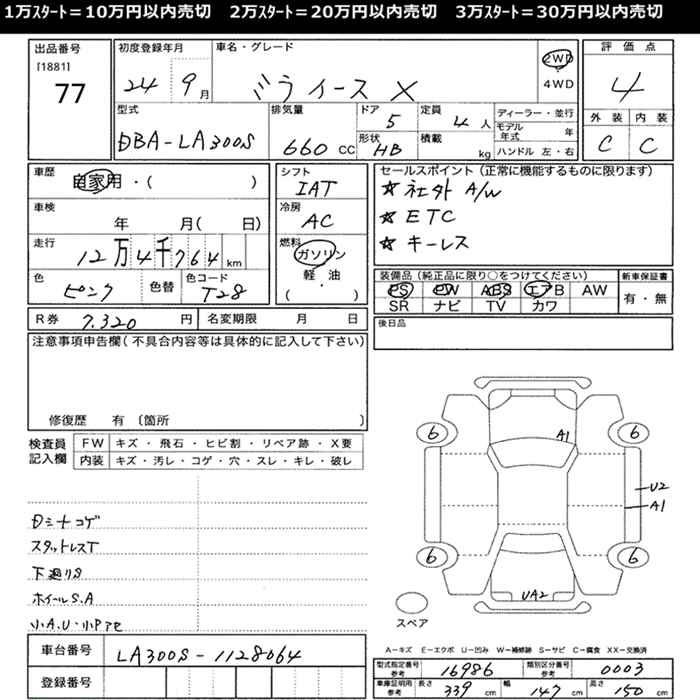 1万ｽﾀｰﾄ＝10万円以内売切　2万ｽﾀｰﾄ＝20万円以内売切　3万ｽﾀｰﾄ＝30万円以内売切
出品番号
[1881]
77
初度登録年月
24 9月
車名・グレード
ミライース X
2WD
・
4WD
評価点
4
外装 内装
C C
型式
DBA-LA300S
排気量
660 CC
ドア
5
定員
4人
形状
HB
積載
kg
ディーラー・並行
モデル年式 年
ハンドル 左・右
車歴
自家用・( )
車検
年 月( 日)
走行
12万4千764 km
色
ピンク
色替
色コード
T28
シフト
IAT
冷房
AC
燃料
ガソリン
軽・油
・
( )
セールスポイント(正常に機能するものに限ります)
☆社外 A/W
☆ETC
☆キーレス
装備品(純正品に限り○をつけてください)
PS PW ABS エアB AW
SR ナビ TV カワ
新車保証書
有・無
R券 7.320 円
名変期限 月 日
後日品
注意事項申告欄(不具合内容等は具体的に記入して下さい)
修復歴 有〔箇所 〕
検査員
記入欄
FW キズ・飛石・ヒビ割・リペア跡・X要
内装 キズ・汚レ・コゲ・穴・スレ・キレ・破レ
スタットレスT
下廻りS
ホイールS.A
小A.U・小Pアセ
A1
6 6
U2
A1
6 6
UA2
スペア
A－キズ E－エクボ U－凹み W－補修跡 S－サビ C－腐食 XX－交換済
車台番号 LA300S-1128064
登録番号
型式指定番号
参考
16986
類別区分番号
参考
0003
車庫証明用
参考
長さ 339 cm
幅 147 cm
高さ 150 cm